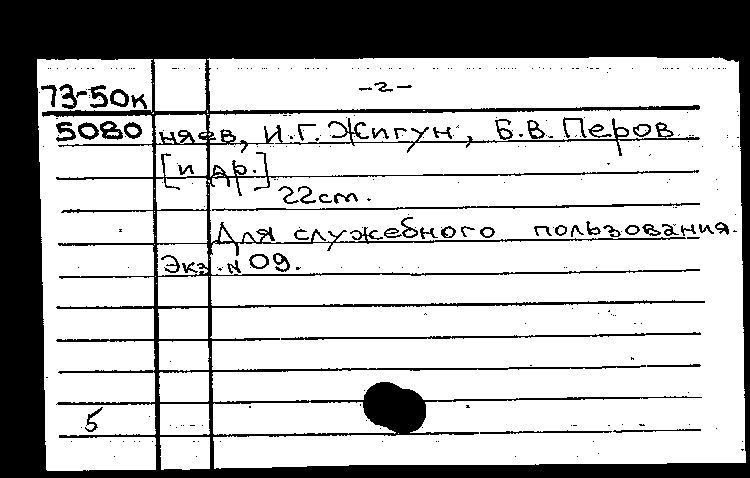 73-50к -2-
5080 няев, И.Г. Жигун, Б.В. Перов
[и др.]
22 cm.
Для служебного пользования.
Экз. N 09.
5